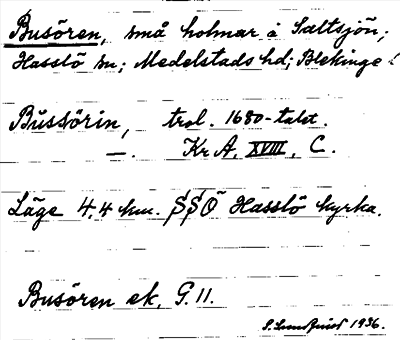 Busören, små holmar å Saltsjön;
Hasslö sn; Medelstads hd; Blekinge l
Bŭssörin, trol. 1680-talet.
—. Kr A, XVIII, C.
Läge 4,4 km. SSO Hasslö kyrka.
Busören ek. G. 11.
S. Lundquist 1936.